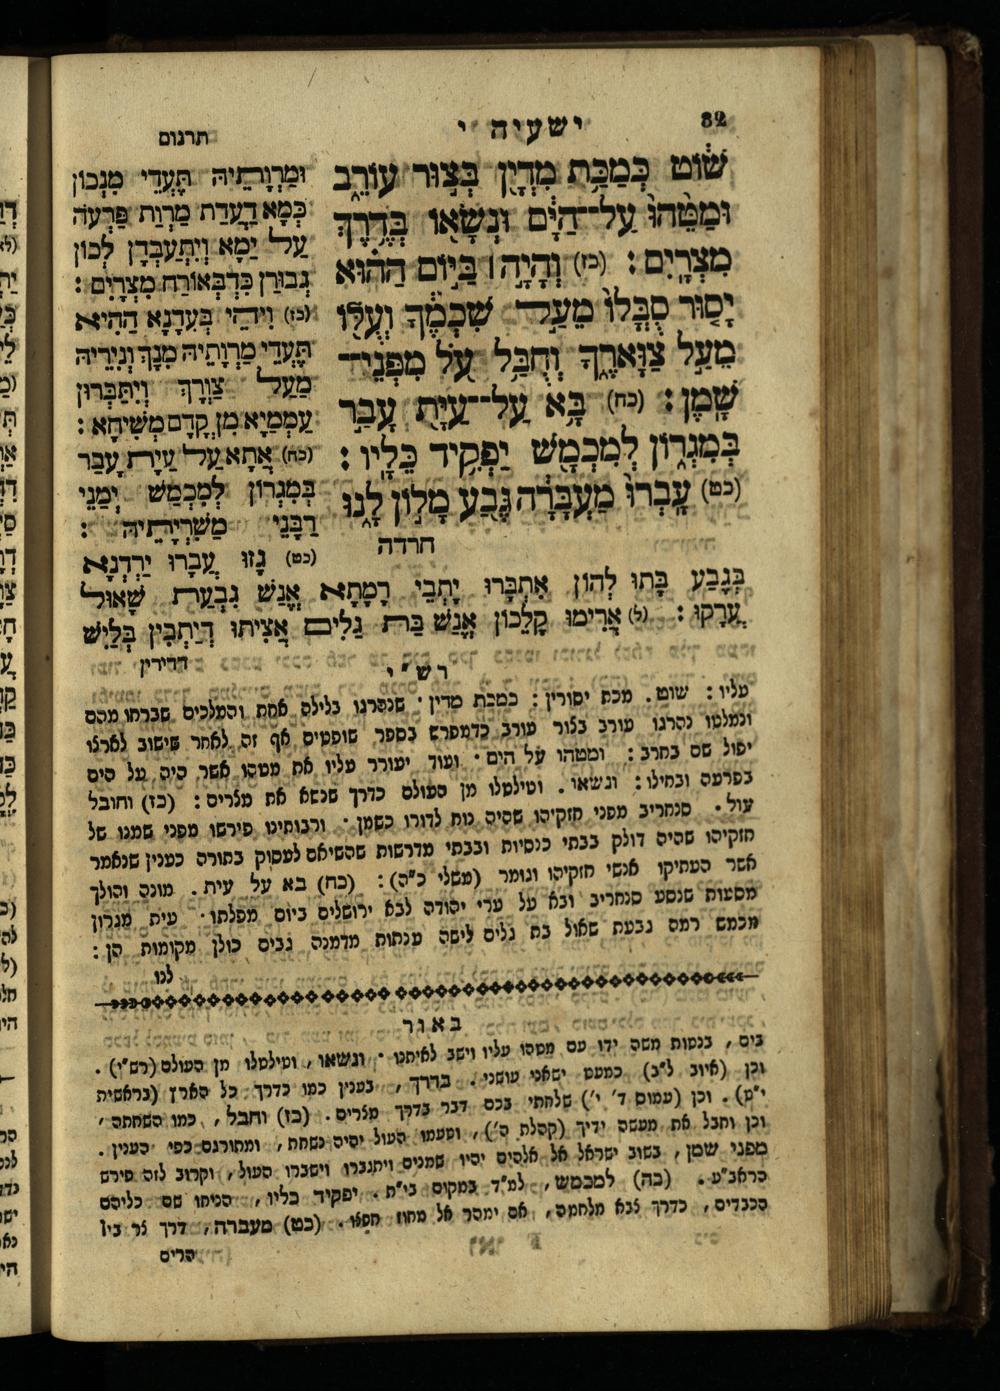 82
ישעיה י
תרגום
שׁוֹט כְּמַכַּת מִדְיָן בְּצוּר עוֹרֵב
וּמַטֵּהוּ עַל־הַיָּם וּנְשָׂאוֹ בְּדֶרֶךְ
מִצְרָיִם : (כז) וְהָיָה ׀ בַּיּוֹם הַהוּא
יָסוּר סֻבֳּלוֹ מֵעַל שִׁכְמֶךָ וְעֻלּוֹ
מֵעַל צַוָּארֶךָ וְחֻבַּל עֹל מִפְּנֵי־
שָׁמֶן : (כח) בָּא עַל־עַיַּת עָבַר
בְּמִגְרוֹן לְמִכְמָשׂ יַפְקִיד כֵּלָיו :
(כט) עָבְרוּ מַעְבָּרָה גֶּבַע מָלוֹן לָנוּ
חרדה
וּמַרְוָתֵיהּ תֶּעְדֵי מִנְכוֹן
כְּמָא דַעֲדַת מַרְוַת פַּרְעֹה
עַל יַמָא וְיִתְעַבְדָן לְכוֹן
גְבוּרָן כִּדְבְּאוֹרַח מִצְרָיִם :
(כז) וִיהֵי בְּעִדָנָא הַהִיא
תֶּעְדֵי מַרְוָתֵיהּ מִנָךְ וְנִירֵיהּ
מֵעַל צַוְרָךְ וְיִתַּבְּרוּן
עַמְמַיָא מִן קֳדָם מְשִׁיחָא :
(כח) אֲתָא עַל עַיַת עֲבַר
בְּמִגְרוֹן לְמִכְמַשׂ יְמַנֵי
רַבָּנֵי מַשִׁרְיָתֵיהּ :
(כט) גָזוּ עֲבָרוּ יַרְדְנָא
בְּגֶבַע בָּתוּ לְהוֹן אִתְבָּרוּ יָתְבֵי רָמָתָא אֱנָשׁ גִבְעַת שָׁאוּל
עֲרָקוּ : (ל) אֲרִימוּ קָלֵכוֹן אֱנָשׁ בַּת גַלִים אֲצִיתוּ דְיָתְבִין בְּלַיִשׁ
דדירין
רש״י
עליו : שוט . מכת יסורין : כמכת מדין . שנהרגו בלילה אחת והמלכים שברחו מהם
ונמלטו נהרגו עורב בצור עורב כדמפרש בספר שופטים אף זה לאחר שישוב לארצו
יפול שם בחרב : ומטהו על הים . ועוד יעורר עליו את מטהו אשר היה על הים
בפרעה ובחילו : ונשאו . וטילטלו מן העולם כדרך שנשא את מצרים : (כז) וחובל
עול . סנחריב מפני חזקיהו שהיה נוח לדורו כשמן . ורבותינו פירשו מפני שמנו של
חזקיהו שהיה דולק בבתי כנסיות ובבתי מדרשות שהשיאם לעסוק בתורה כענין שנאמר
אשר העתיקו אנשי חזקיהו וגומר (משלי כ״ה) : (כח) בא על עית . מונה והולך
מסעות שנסע סנחריב ובא על ערי יהודה לבא ירושלים ביום מפלתו . עית מגרון
מכמש רמה גבעת שאול בת גלים לישה ענתות מדמנה גבים כולן מקומות הן :
לנו
באור
בים , בנטות משה ידו עם מטהו עליו וישב לאיתנו . ונשאו , וטילטלו מן העולם (רש״י) .
וכן (איוב ל״ב) כמעט ישאני עושני . בדרך , בענין כמו כדרך כל הארץ (בראשית
י״ט) . וכן (עמוס ד׳ י׳) שלחתי בכם דבר בדרך מצרים . (כז) וחבל , כמו השחתה ,
וכן וחבל את מעשה ידיך (קהלת ה׳) , וטעמו העול יהיה נשחת , ומתורגם כפי הענין .
מפני שמן , בשוב ישראל אל אלהים יהיו שמנים ויתגברו וישברו העול , וקרוב לזה פירש
הראב״ע . (כח) למכמש , למ״ד במקום בי״ת . יפקיד כליו , הניחו שם כליהם
הכבדים , כדרך צבא מלחמה , אם ימהר אל מחוז חפצו . (כט) מעברה , דרך צר בין
הרים